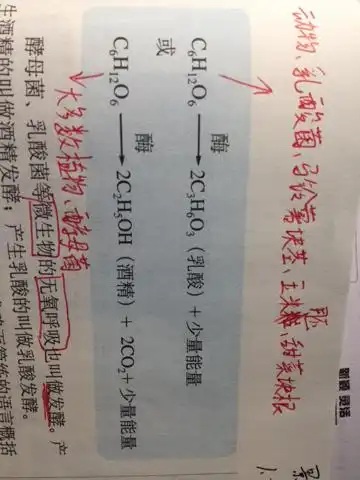 动物、乳酸菌、马铃薯块茎、玉米胚、甜菜块根
C₆H₁₂O₆ —酶→ 2C₃H₆O₃（乳酸）+ 少量能量
或
C₆H₁₂O₆ —酶→ 2C₂H₅OH（酒精）+ 2CO₂+ 少量能量
大多数植物、酵母菌
酵母菌、乳酸菌等微生物的无氧呼吸也叫做发酵。产
生酒精的叫做酒精发酵；产生乳酸的叫做乳酸发酵。
的语言概括